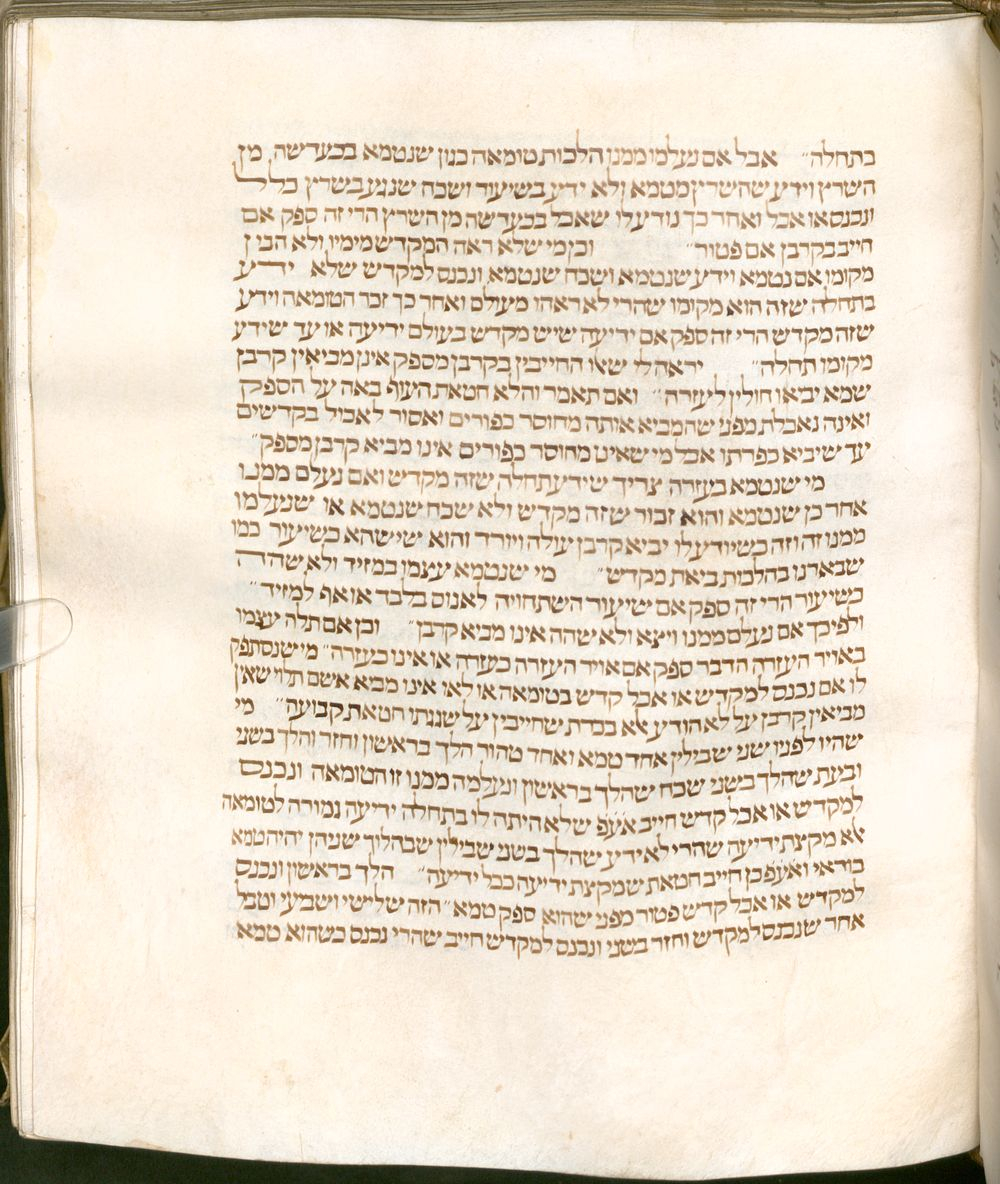 בתחלה״ אבל אם נעלמו ממנו הלכות טומאה כגון שנטמא בכעדשה מן
השרץ וידע שהשרץ מטמא ולא ידע בשיעור ושכח שנגע בשרץ כלל
ונכנס או אכל ואחר כך נודע לו שאכל בכעדשה מן השרץ הרי זה ספק אם
חייב בקרבן אם פטור״ וכן מי שלא ראה המקדש מימיו ולא הבין
מקומו אם נטמא וידע שנטמא ושכח שנטמא ונכנס למקדש שלא ידע
בתחלה שזה הוא מקומו שהרי לא ראהו מעולם ואחר כך זכר הטומאה וידע
שזה מקדש הרי זה ספק אם ידיעה שיש מקדש בעולם ידיעה או עד שידע
מקומו תחלה״ יראה לי שאלו החייבין בקרבן מספק אינן מביאין קרבן
שמא יביאו חולין לעזרה״ ואם תאמר והלא חטאת העוף באה על הספק
ואינה נאכלת מפני שהמביא אותה מחוסר כפורים ואסור לאכול בקדשים
עד שיביא כפרתו אבל מי שאינו מחוסר כפורים אינו מביא קרבן מספק״
מי שנטמא בעזרה צריך שידע תחלה שזה מקדש ואם נעלם ממנו
אחר כן שנטמא והוא זכור שזה מקדש ולא שכח שנטמא או שנעלמו
ממנו זה וזה כשיודע לו יביא קרבן עולה ויורד והוא שישהא כשיעור כמו
שבארנו בהלכות ביאת מקדש״ מי שנטמא עצמו במזיד ולא שהה
כשיעור הרי זה ספק אם שיעור השתחויה לאנוס בלבד או אף למזיד״
ולפיכך אם נעלם ממנו ויצא ולא שהה אינו מביא קרבן״ וכן אם תלה עצמו
באויר העזרה הדבר ספק אם אויר העזרה כעזרה או אינו כעזרה״ מי שנסתפק
לו אם נכנס למקדש או אכל קדש בטומאה או לאו אינו מביא אשם תלוי שאין
מביאין קרבן על לא הודע אלא בכרת שחייבין על שגגתו חטאת קבועה״ מי
שהיו לפניו שני שבילין אחד טמא ואחד טהור הלך בראשון וחזר והלך בשני
ובעת שהלך בשני שכח שהלך בראשון ונעלמה ממנו זו הטומאה ונכנס
למקדש או אכל קדש חייב אעפ שלא היתה לו בתחלה ידיעה גמורה לטומאה
אלא מקצת ידיעה שהרי לא ידע שהלך בשני שבילין שבהלוך שניהן יהיה טמא
בודאי ואעפכן חייב חטאת שמקצת ידיעה ככל ידיעה״ הלך בראשון ונכנס
למקדש או אכל קדש פטור מפני שהוא ספק טמא״ הזה שלישי ושביעי וטבל
אחר שנכנס למקדש וחזר בשני ונכנס למקדש חייב שהרי נכנס כשהוא טמא